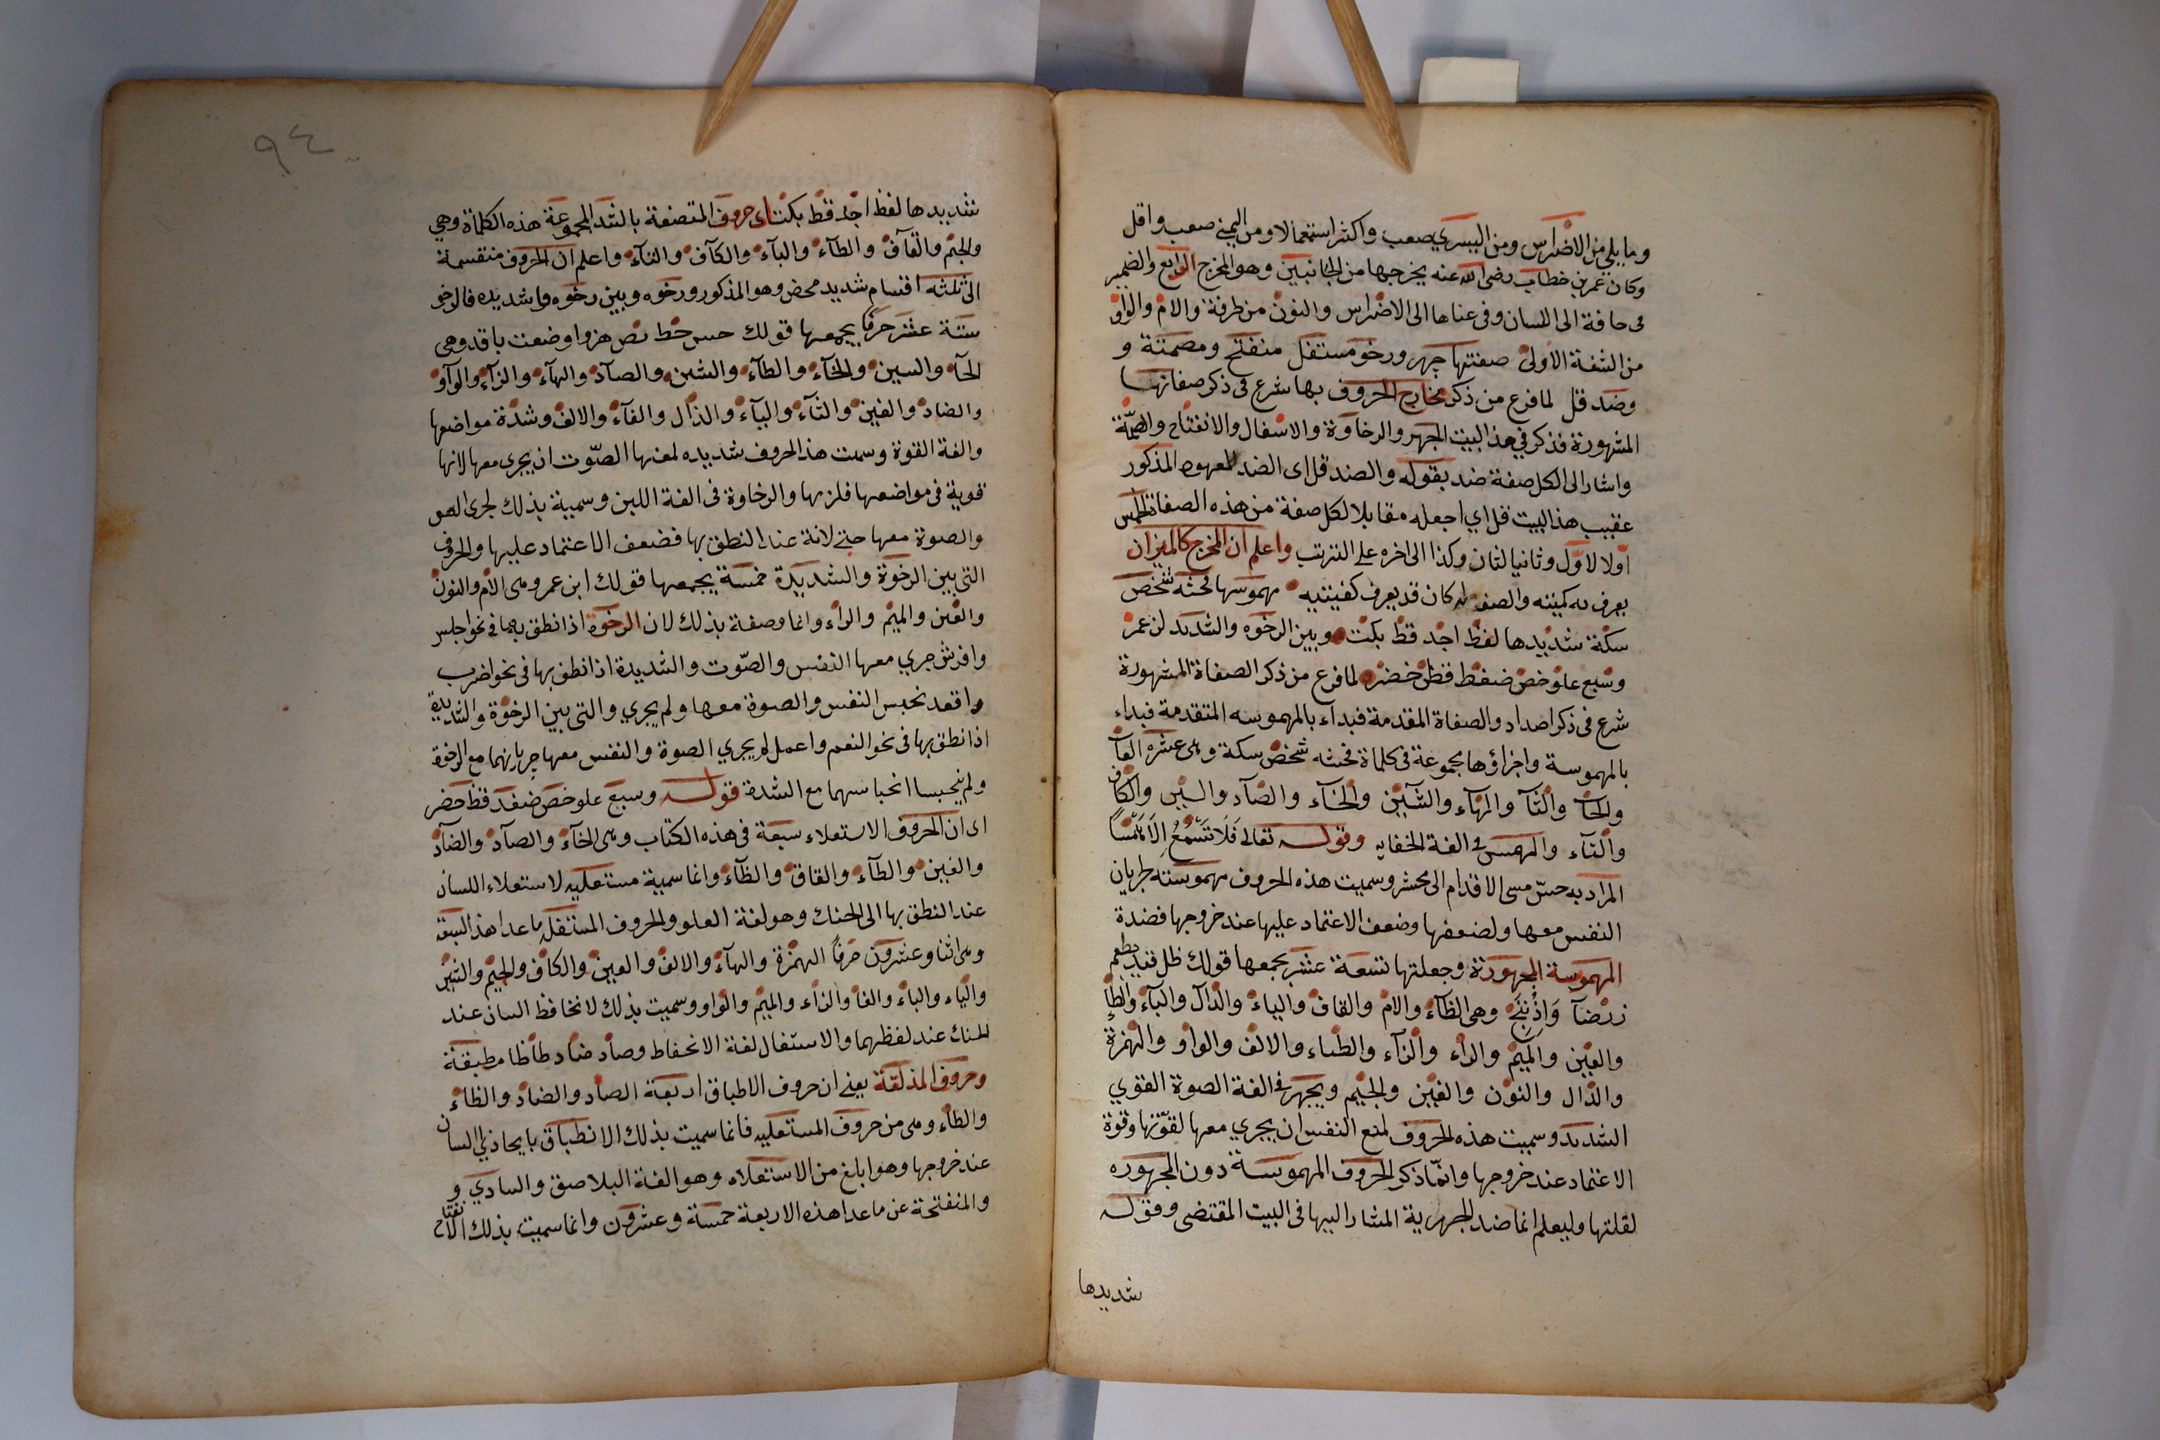 وما يلي من الاضراس ومن اليسرى صعب واكثر استعمالا ومن اليمنى صعب واقل
وكان عمر بن خطاب رضى الله عنه يخرجها من الجانبين وهو المخرج الرابع والضمير
فى حافة الى اللسان وفى عناها الى الاضراس والنون من طرفة والام والواو
من الشفة الاولى صفتها جهر ورخو مستفل منفتح ومصمتة و
وضد قل لما فرع من ذكر مخارج الحروف بها شرع فى ذكر صفاتها
المشهورة فذكر في هذا البيت الجهر والرخاوة والاسفال والانفتاح والصمتة
واشار الى الكل صفة ضد بقوله والضد قل اى الضد المذكور
عقيب هذا البيت قل اي اجعله مقابلا لكل صفة من هذه الصفاة الخمس
اولا لاول وثانيا لثان وكذا الى اخره على الترتب واعلم ان المخرج كالميزان
يعرف به كميته والصفة كان قد يعرف كفيتيه مهموسها فحثه شخص
سكة شديدها لفظ اجد قط بكت وبين الرخوه والشديد لن عمر
وسبع علو خص ضغط قظ خضر لما فرع من ذكر الصفاة المشهورة
شرع فى ذكر اضداد والصفاة المقدمة فبداء بالمهموسه المتقدمة فبداء
بالمهموسة واجزاؤها مجموعة فى كلماة فحثه شخص سكة وهى عشرة الفآ
والحآ والثآ والهآء والشين والخآء والصآد والسين والكاف
والتآء والهمس فى الغة الخفايه وقوله تعالى فلا تسمع الا همسا
المراد به حس مسى الاقدام الى محشر وسميت هذه الحروف مهموسته لجريان
النفس معها ولضعفها وضعف الاعتماد عليها عند خروجها فضدة
المهموسة المجهورة وجعلتها تسعة عشر يجمعها قولك ظل قيد بطعم
زرضآ واذنيج وهى الظآء والام والقاف والياء والدال والبآء والطآ
والعين والميم والراء والزآء والطاء والالف والواو والهمزة
والذال والنون والغين والجيم ويجهر فى الغة الصوة القوي
الشديد وسميت هذه الحروف لمنع النفس ان يجري معها لقوتها وقوة
الاعتماد عند خروجها وانما ذكر الحروف المهموسة دون المجهوره
لقلتها وليعلم انما ضد للجهرية المشار اليها فى البيت المقتضى وقوله
شديدها
٩٤
شديدها لفظ اجد قط بكت اى حروف المتصفة بالشد المجموعة هذه الكلماة وهي
والجيم والقاف والطآء والبآء والكآف والتآء واعلم ان الحروف منقسمة
الى ثلثه اقسام شديد محض وهو المذكور ورخوه وبين رخوه وشديده فالرخو
ستة عشر حرفا يجمعها قولك حس خط نص هزوا وضعت باقد وهى
الحآء والسين والخآء والطآء والشين والصآد والهآء والزآء والوآو
والضاد والغين والثآء واليآء والذال والفآء والالف وشدة مواضعها
والغة القوة وسمت هذا الحروف شديده لمعنها الصوت ان يجرى معها لانها
قوية فى مواضعها فلزمها والرخاوة فى الغة اللين وسمية بذلك لجرى الهو
والصوة معها حتى لانة عند النطق بها فضعف الاعتماد عليها والحروف
التى بين الرخوة والشديدة خمسة يجمعها قولك ابن عمر وهى الام والنون
والعين والميم والراء وانما وصفة بذلك لان الرخوة اذا نطق بها فى نحو اجلس
وافرش جرى معها النفس والصوت والشديدة اذا نطق بها فى نحو اضرب
واقعد نحبس النفس والصوة معها ولم يجري والتى بين الرخوة والشديدة
اذا نطق بها فى نحو النعم واعمل لم يجري الصوة والنفس معها جريانهما مع الرخوة
ولم ينحبسا انحباسهما مع الشدة قوله وسبع علو خص ضغد قظ خضر
اى ان الحروف الاستعلاء سبعة فى هذه الكتاب وهى الخآء والصآد والضآد
والغين والطآء والقاق والظآء وانما سمية مستعليه لاستعلاء اللسان
عند النطق بها الى الحنك وهو لغة العلو والحروف المستفلة ما عدا هذا السبعة
وهى اثنا وعشرون حرفا الهمزة والهآء والالف والعين والكاف والجيم والشين
والياء والباء والفآ والزاء والميم والواو وسميت بذلك لانخافظ السان عند
الحنك عند لفظهما والاستفال لغة الانحفاط وصاد ضاد طا ظا مطبقة
وحروف المذلقة يعنى ان حروف الاطباق اربعة الصاد والضاد والظاء
والطاء وهى من حروف المستعليه فانما سميت بذلك الانطباق السان
عند خروجها وهو ابلغ من الاستعلاء وهو الغة البلاصق والسادي و
والمنفتحة عن ماعدا هذه الاربعة خمسة وعشرون وانما سميت بذلك